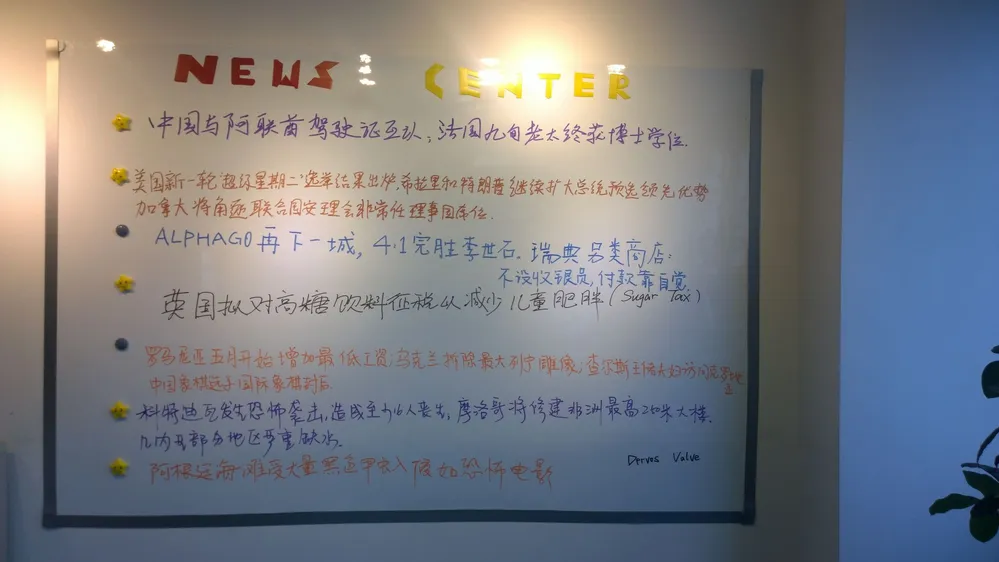 NEWS CENTER
中国与阿联酋驾驶证互认；法国九旬老太终获博士学位.
美国新一轮“超级星期二”选举结果出炉,希拉里和特朗普继续扩大总统预选领先优势
加拿大将角逐联合国安理会非常任理事国席位.
ALPHAGO再下一城, 4:1完胜李世石. 瑞典另类商店:
不设收银员, 付款靠自觉.
英国拟对高糖饮料征税以减少儿童肥胖 (Sugar Tax)
罗马尼亚五月开始增加最低工资；乌克兰拆除最大列宁雕像；查尔斯王储夫妇访问
中国象棋 国际象棋
科特迪瓦发生恐怖袭击, 造成至少16人丧生, 摩洛哥将修建非洲最高250米大楼.
几内亚部分地区严重缺水.
阿根廷海滩受大量黑色甲虫入侵如恐怖电影
Value